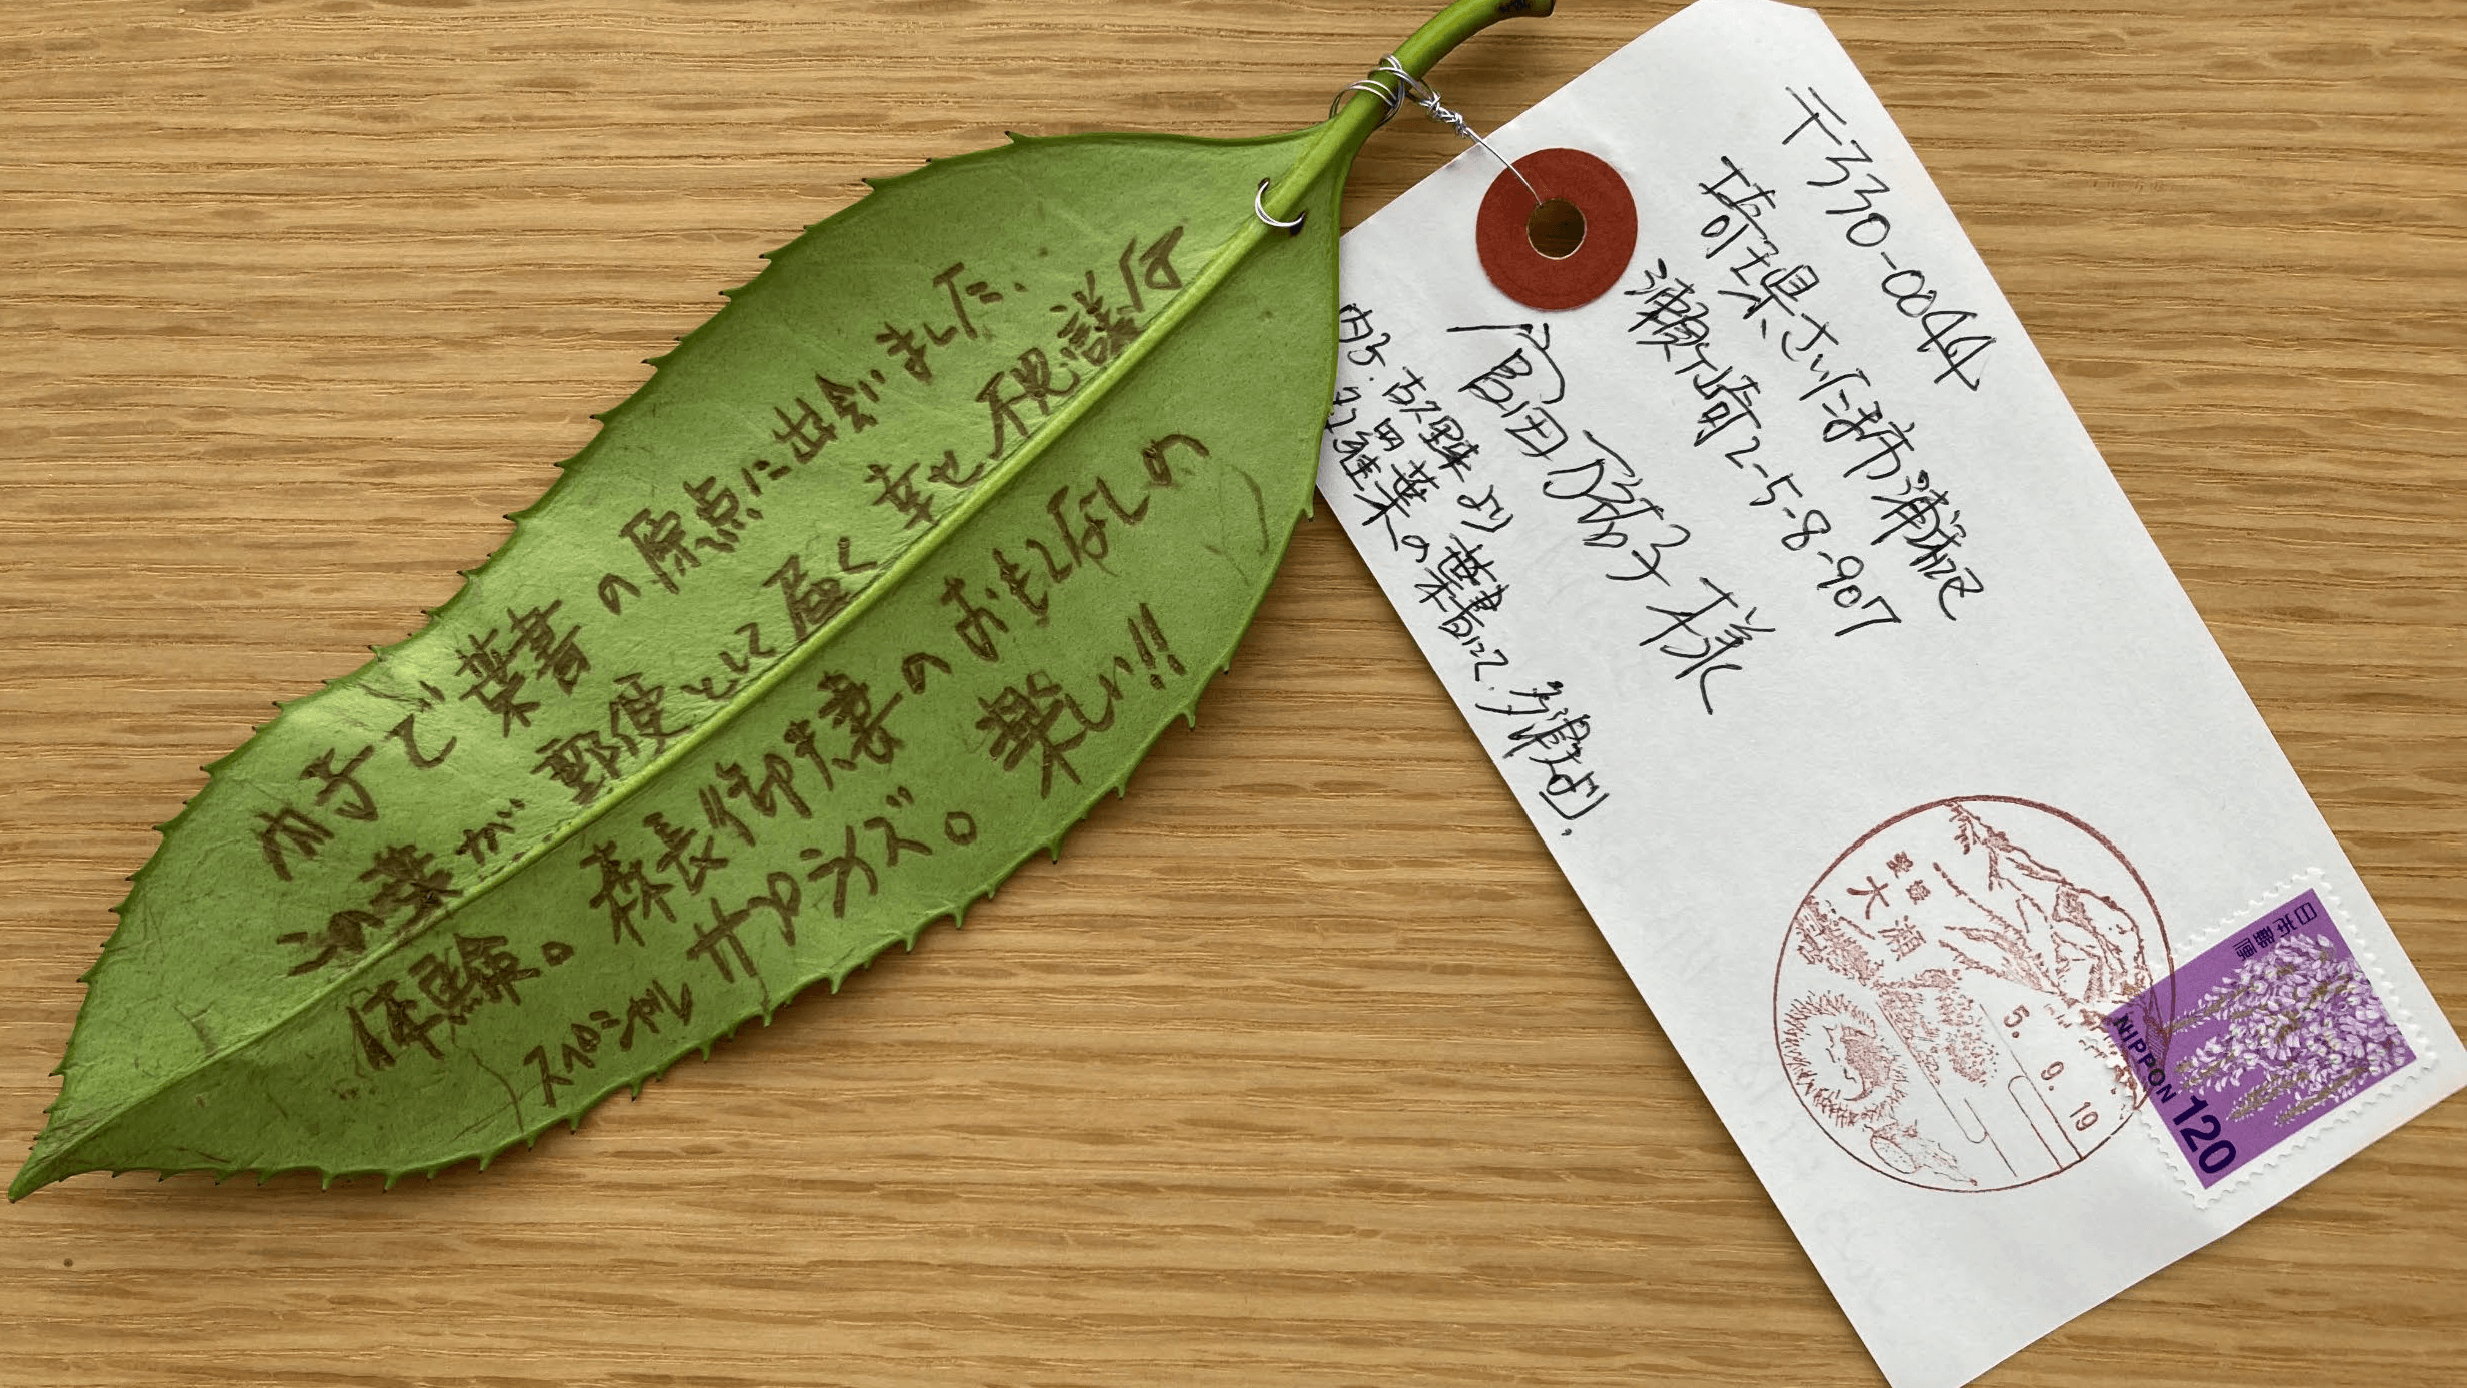 内子で葉書の原点に出会いました、
この葉が郵便として届く幸せ不思議な
体験。森長御夫妻のおもてなしの
スペシャルサプライズ。楽しい!!
〒330-0044
埼玉県さいたま市浦和区
瀬ヶ崎2-5-8-907
内子、古久里来より
多羅葉の葉書にて、
様
愛媛
大瀬
5. 9. 19
日本郵便
NIPPON 120